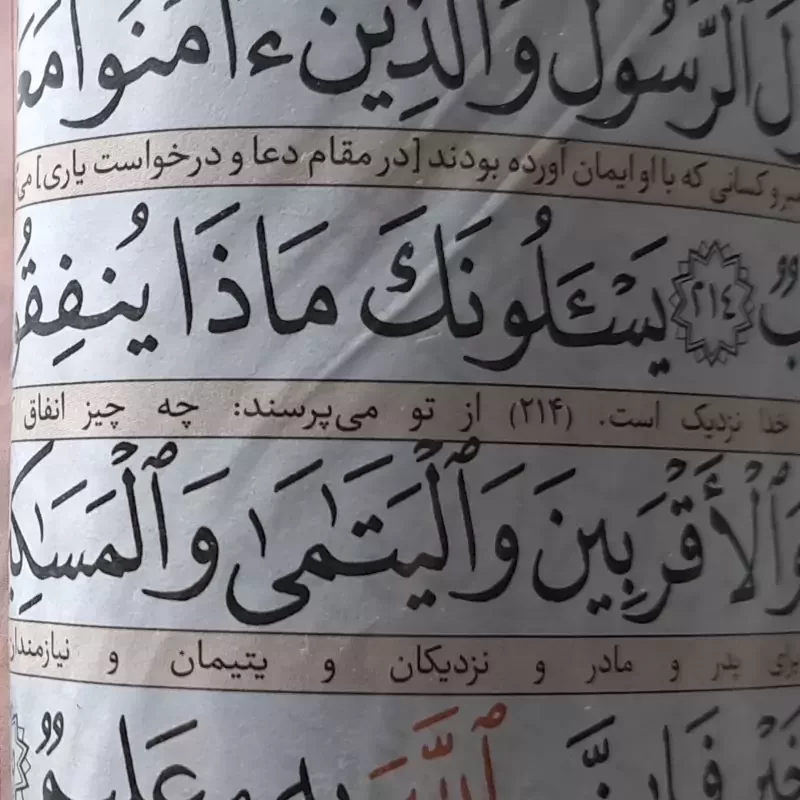 ٱلرَّسُولُ وَٱلَّذِينَ ءَامَنُوا۟
و کسانی که با او ایمان آورده بودند [در مقام دعا و درخواست یاری]
يَسْـَٔلُونَكَ مَاذَا ٢١٤
خدا نزدیک است. (۲۱۴) از تو می‌پرسند: چه چیز انفاق
وَٱلْأَقْرَبِينَ وَٱلْيَتَـٰمَىٰ
برای پدر و مادر و نزدیکان و یتیمان و نیازمندان
فَإِنَّ ٱللَّهَ بِهِۦ عَلِيمٌ